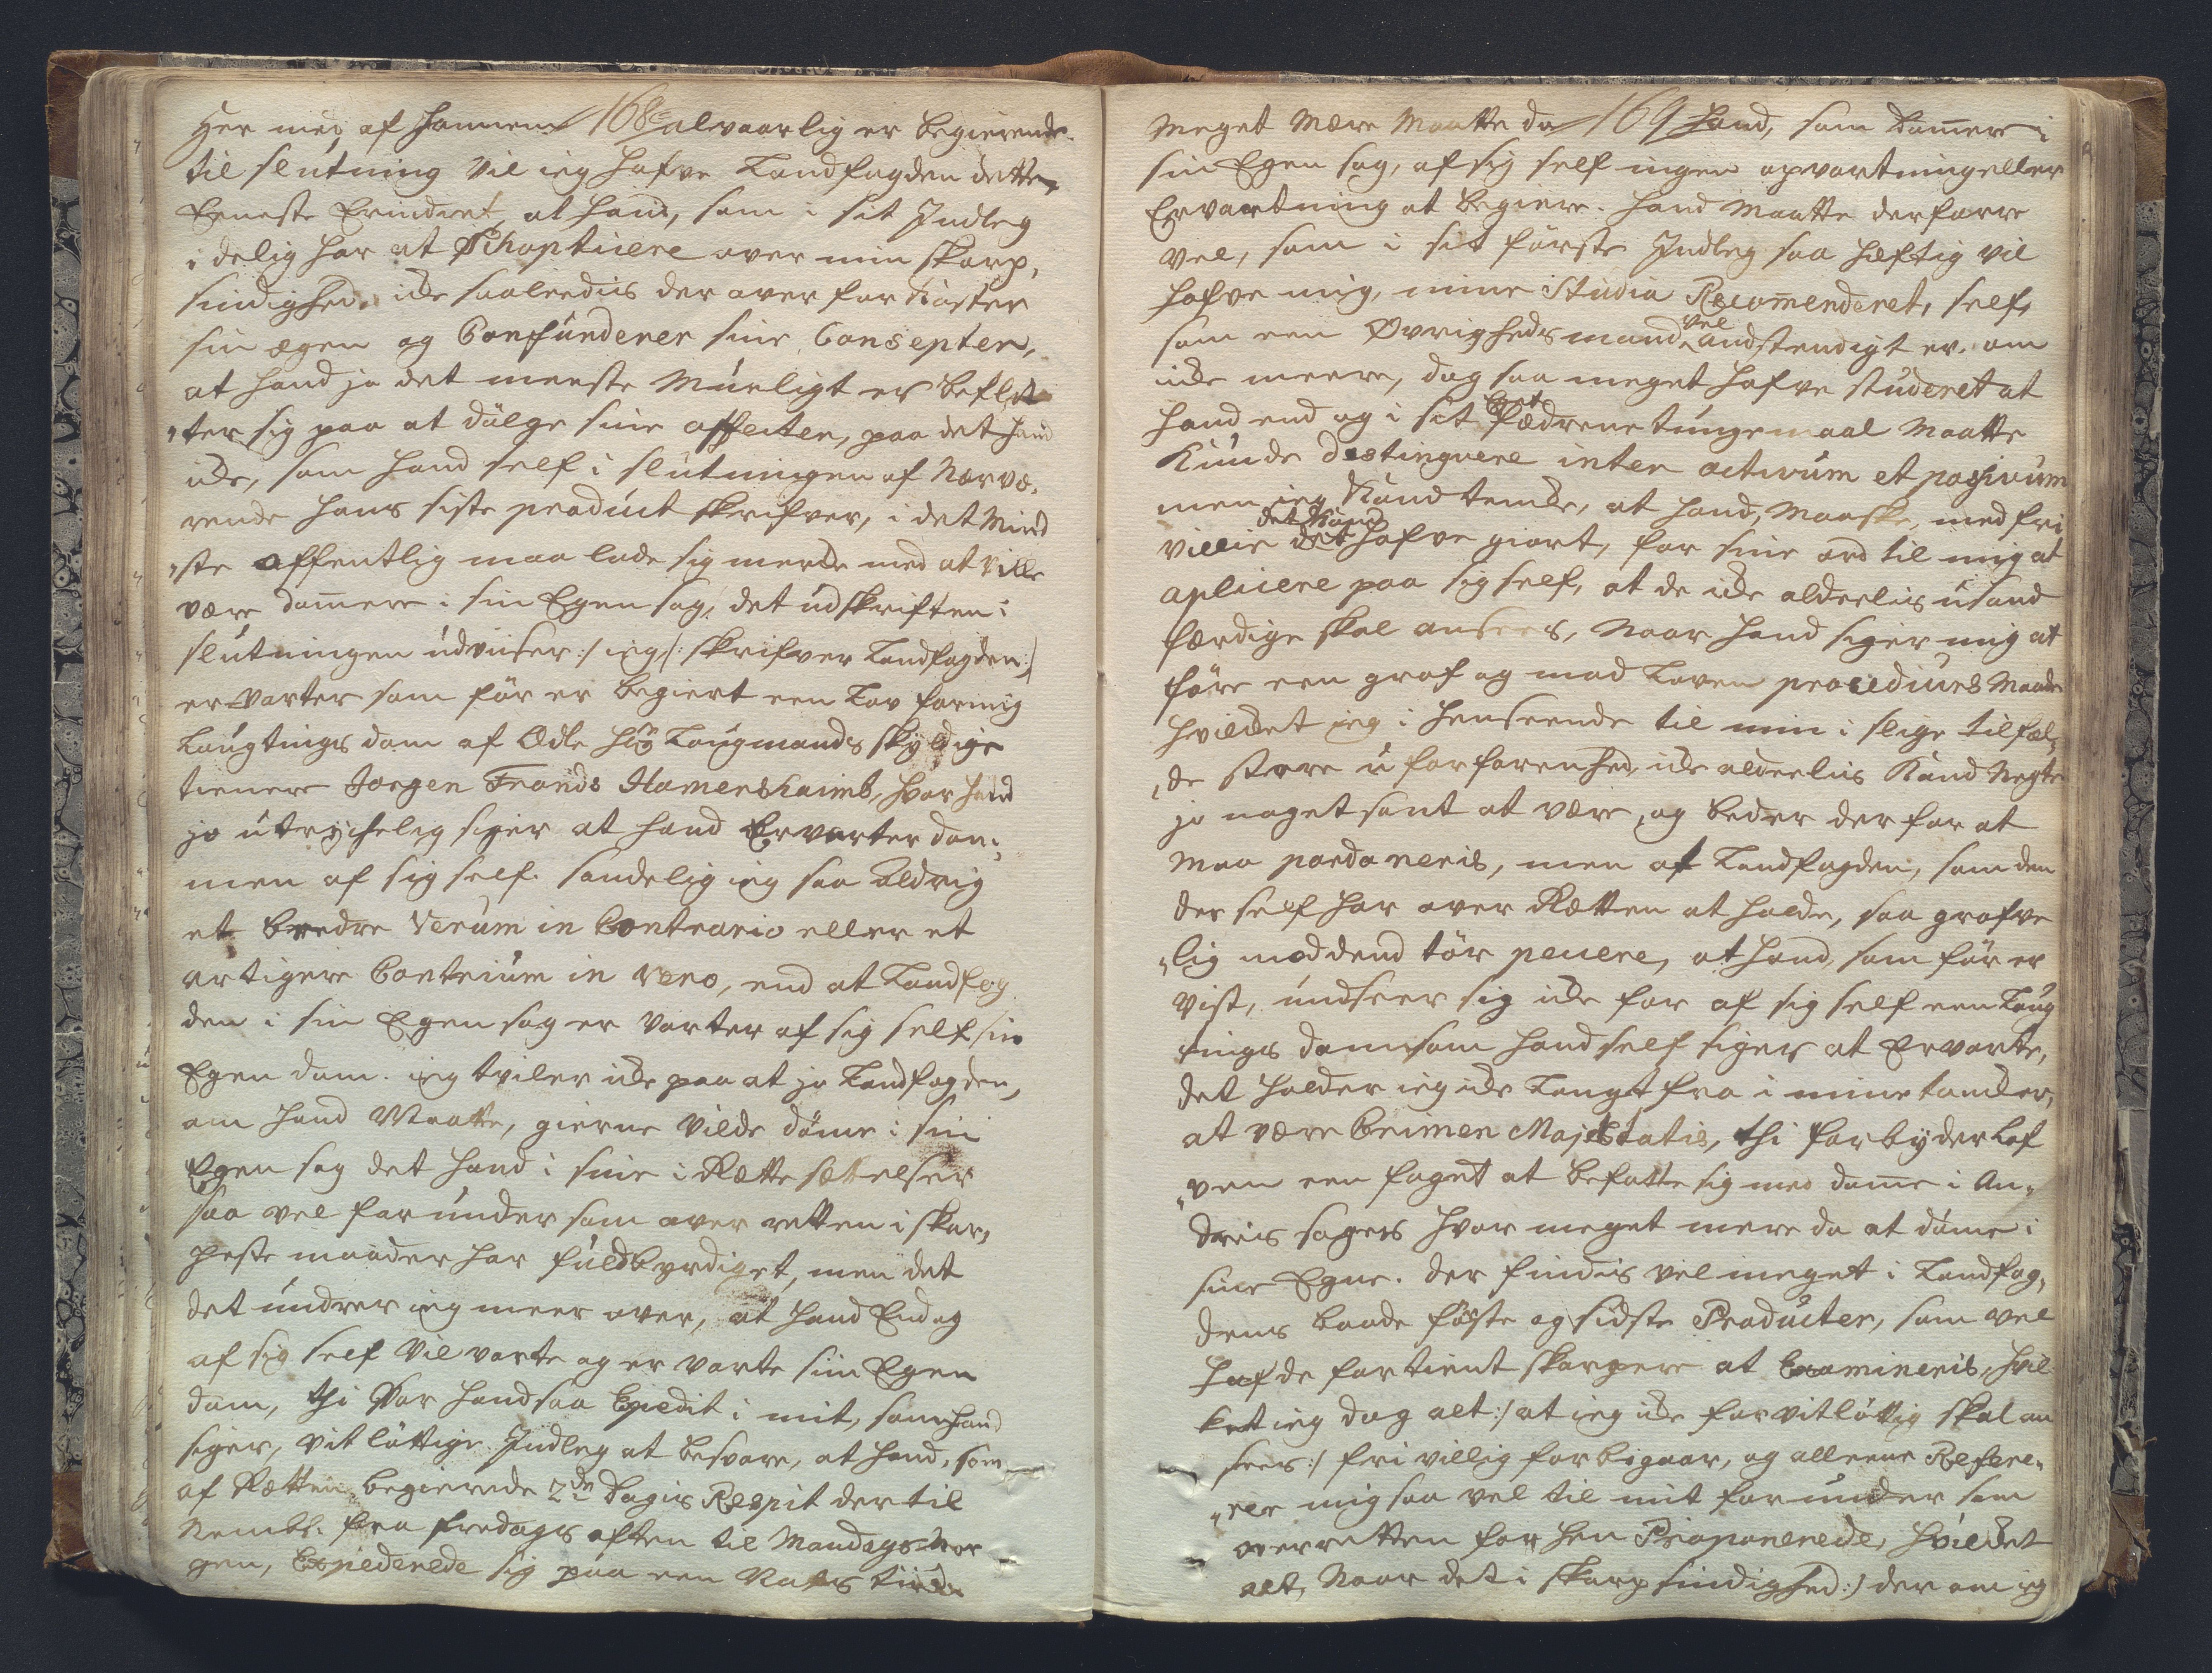 168
Her med af Hannem alvaarlig er begierende.
til slutning vil ieg hafve Landfogden dette,
Eeneste Erindret, at hand, som i sit Indleg
idelig har at Schoptisere over min skarp,
sindighed, iche saaleedis der over forkaster
sin ægen og Confunderer sine Consepter,
at hand jo det meeste mueligt er beflit
„ter sig paa at dölge sine affecter, paa det hand
iche, som hand self i slutningen af Nærvæ,
rende hans siste product skrifver, i det Mind
„ste offentlig maa lade sig merche med at ville
være dommere i sin Egen sag, det udskriften i
slutningen udviiser :/ ieg /: skrifver Landfogden :/
er varter som för er begiert een Lov formig
Laugtings dom af Ædle Hr Laugmands skyldige
tienere Jorgen Frands Hamershaimb, hvor hand
jo utrychelig siger at hand Ervarter dom,
men af sig self. sandelig ieg saa aldrig
et bædre Verum in Contrario eller et
artigere Contrium in vero, end at Landfog
den i sin Egen sag er varter af sig self sin
Egen dom. ieg tviler iche paa at jo Landfogden,
om hand Maatte, gierne vilde döme i sin
Egen sag det hand i sine i Rætte sættelser
saa vel for under som over retten i skar,
peste maader har fuldbyrdiget, men det
det undrer ieg meer over, at hand Endog
af sig self vil varte og er varte sin Egen
dom, thi Var hand saa Expedit i mit, som hand
siger, vitlöftige Indleg at besvare, at hand, som
af Rætten begierede 2de dagis Respit der til
Nembl. fra fredags aften til Mandags Mor
gen, Expederede sig paa een Natts tiid.
169
Meget Mere Maatte da hand, som dommere i
sin Egen sag, af sig self ingen opvartning eller
Ervartning at begiere. Hand Maatte derforre
vel, som i sit förste Indleg saa hæftig vil
hafve mig, mine Studia Recommenderet, self,
som een Øvrigheds mand vel anstendigt er, om
iche meere, dog saa meget hafve studeret at
hand end og i sit Fædrene tungemaal Maatte
Kunde destinguere inter activum et passivum
men ieg Kand tenche, at hand, Maaske, med fri
villie det Kand hafve giort, for sine ord til mig at
aplicere paa sig self, at de iche alderlis usand
færdige skal ansees, Naar hand siger mig at
före een grof og mod Loven procedures Maade
hvilchet ieg i henseende til min i slige tilfæl,
„de store uforfarenhed, iche alderlis Kand Negte
jo noget sant at være, og beder der for at
maa pardoneris, men at Landfogden, som den
der self har over Rætten at holde, saa grofve
„lig mod dend tör peccere, at hand, som för er
vist, undseer sig iche for af sig self een Laug
tings dom som hand self siger at Ervarte,
det holder ieg iche langt fra i mine tancher,
at være Crimen Majestatis, thi forbyder Lof
„ven een foget at befatte sig med domme i An„
dris sager hvor meget mere da at döme i
sine Egne. der findis vel meget i Landfog,
dens baade förste og sidste Producter, som vel
hafde fortient skarpere at Examineris, hvil
ket ieg dog alt :/ at ieg iche for vitlöftig skal an
sees :/ fri villig forbigaar, og alleene Refere„
„rer mig saa vel til mit for under som
overretten for hen Proponerede, hvilchet
alt, Naar det i skarpsindighed :/ der om ieg